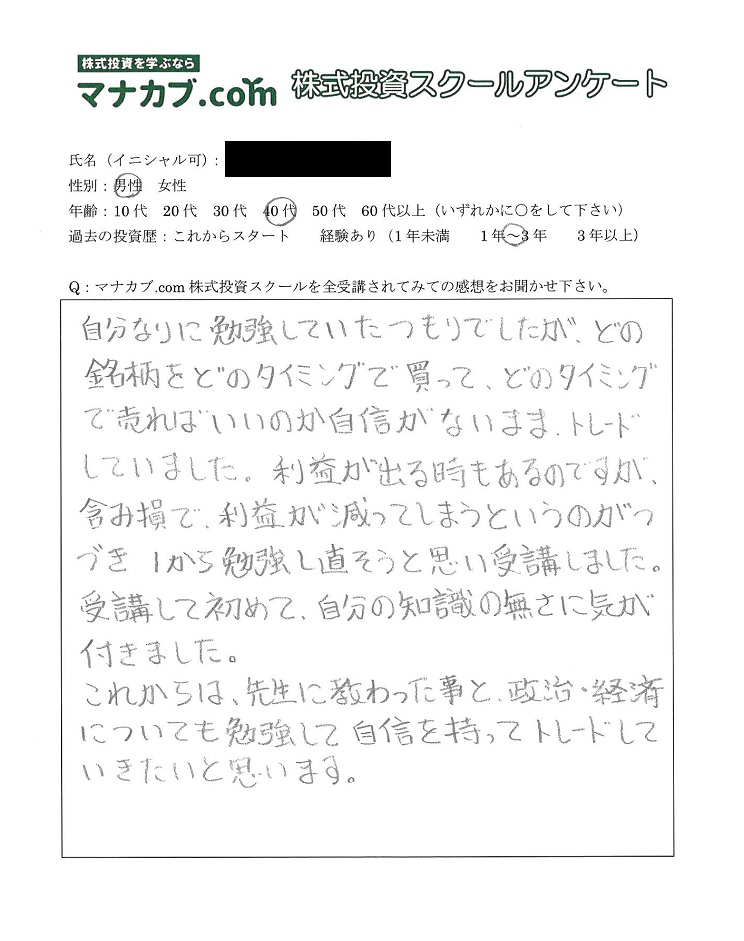 株式投資を学ぶなら
マナカブ.com 株式投資スクールアンケート
氏名（イニシャル可）：
性別：男性　女性
年齢：10代　20代　30代　40代　50代　60代以上（いずれかに○をして下さい）
過去の投資歴：これからスタート　　経験あり（1年未満　　1年～3年　　3年以上）
Q：マナカブ.com 株式投資スクールを全受講されてみての感想をお聞かせ下さい。
自分なりに勉強していたつもりでしたが、どの
銘柄をどのタイミングで買って、どのタイミング
で売ればいいのか自信がないまま、トレード
していました。利益が出る時もあるのですが、
含み損で、利益が減ってしまうというのがつ
づき 1から勉強し直そうと思い受講しました。
受講して初めて、自分の知識の無さに気が
付きました。
これからは、先生に教わった事と、政治・経済
についても勉強して自信を持ってトレードして
いきたいと思います。